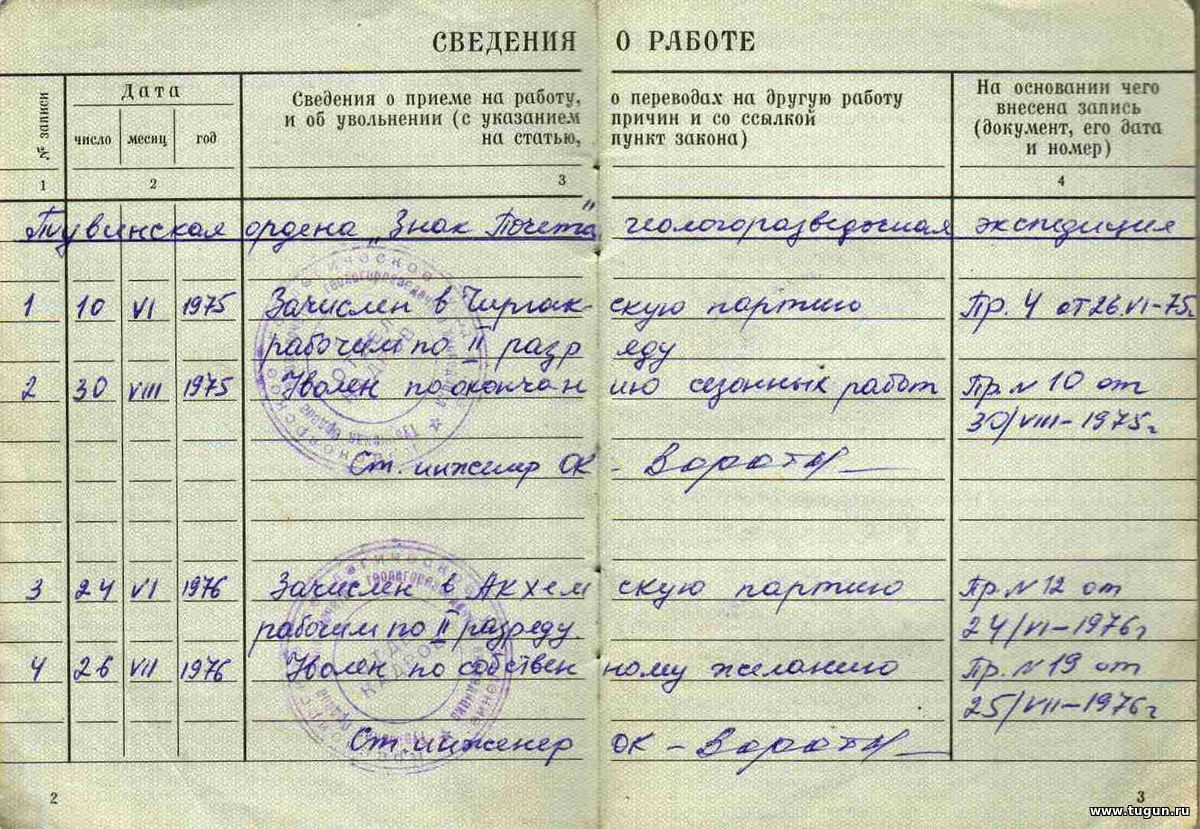 СВЕДЕНИЯ О РАБОТЕ
№ записи
Дата
число месяц год
Сведения о приеме на работу, о переводах на другую работу
и об увольнении (с указанием причин и со ссылкой
на статью, пункт закона)
На основании чего
внесена запись
(документ, его дата
и номер)
1 2 3 4
Тувинская ордена „Знак Почета" геологоразведочная экспедиция
1 10 VI 1975 Зачислен в Чиргакскую партию Пр. 4 от 26.VI-75г
рабочим по II разряду
2 30 VIII 1975 Уволен по окончанию сезонных работ Пр. N 10 от
30/VIII-1975г
Ст. инженер ОК -
3 24 VI 1976 Зачислен в Акхемскую партию Пр. N 12 от
рабочим по II разряду. 24/VI-1976г
4 26 VII 1976 Уволен по собственному желанию Пр. N 19 от
25/VII-1976г
Ст. инженер ОК -
2 3
www.tugun.ru